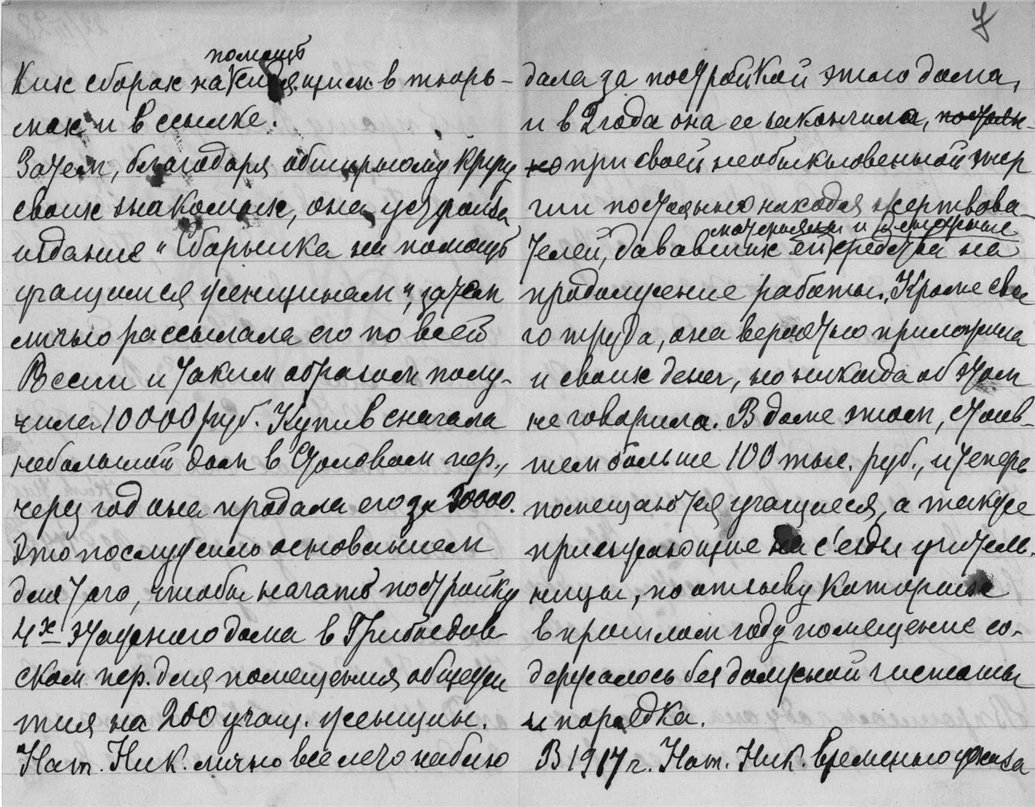 7
помощь
Как сборах на сидящих в тюрь-
мах и в ссылке.
Затем, благодаря обширному кругу
своих знакомых, она устроила
издание "Сборника на помощь
учащимся женщинам", затем
лично рассылала его по всей
России и таким образом полу-
чила 10000 руб. Купив сначала
небольшой дом в Столовом пер.,
через год она продала его за 30000.
Это послужило основанием
для того, чтобы начать постройку
4х этажного дома в Грибоедов-
ском пер. для помещения общежи
тия на 200 учащ. женщин.
Нат. Ник. лично все лето наблю
дала за постройкой этого дома,
и в 2 года она ее закончила,
при своей необыкновенной энер
гии постоянно находя жертвова
материалы и денежные
телей, дававших ей средства на
продолжение работы. Кроме свое
го труда, она вероятно приложила
и своих денег, но никогда об этом
не говорила. В доме этом, стоив-
шем больше 100 тыс. руб., и теперь
помещаются учащиеся, а также
приезжающие на с'езды учитель
ницы, по отзыву которых
в прошлом году помещение со-
держалось без должной чистоты
и порядка.
В 1917 г. Нат. Ник. временно уехала